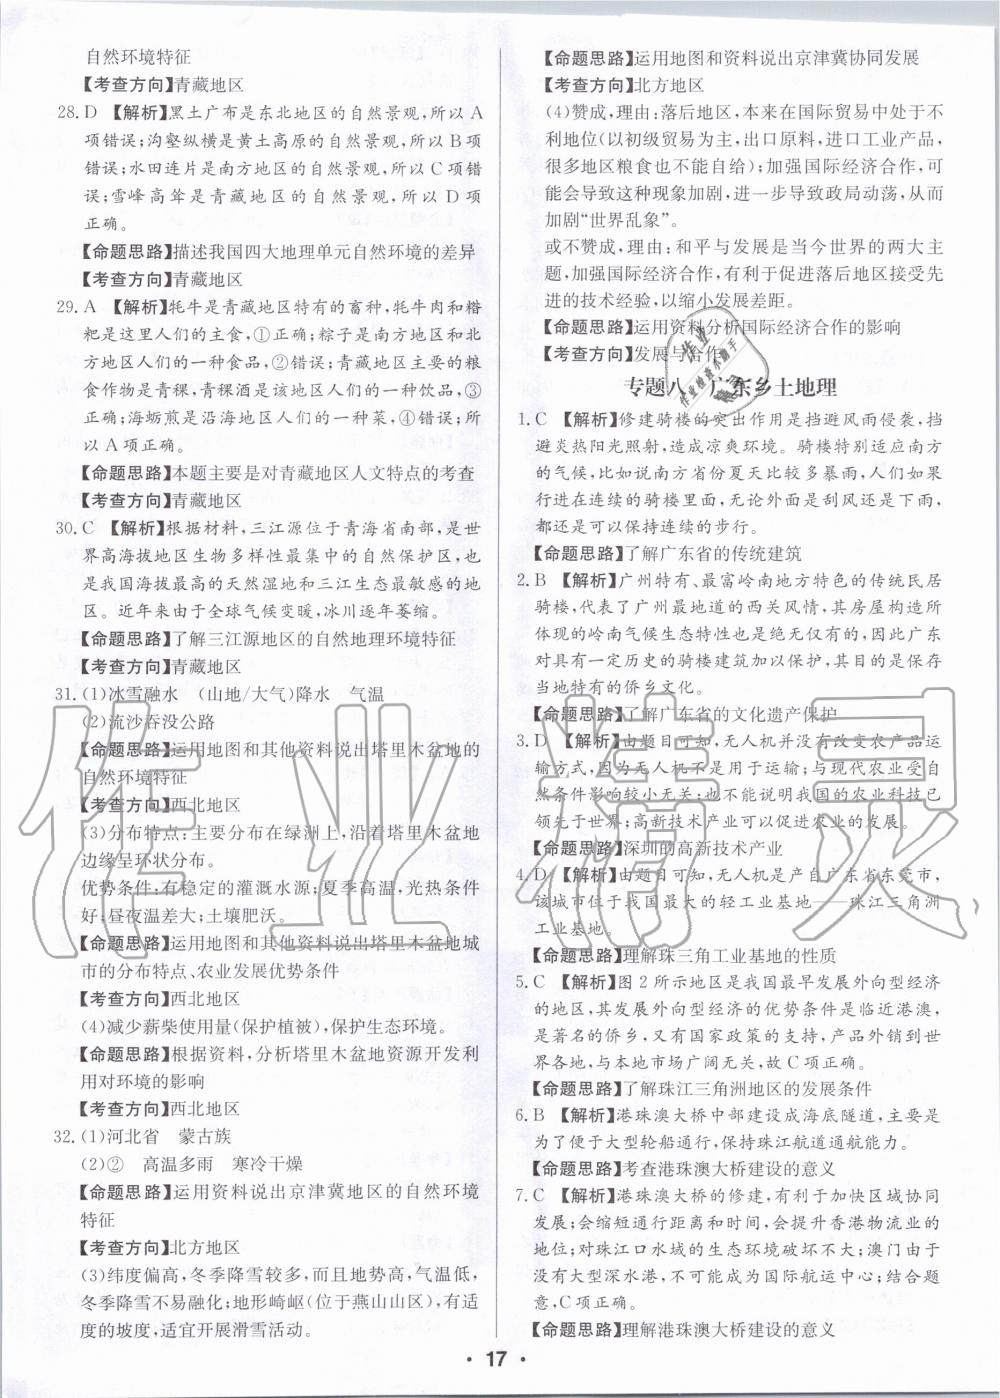 自然环境特征
【考查方向】青藏地区
28. D 【解析】黑土广布是东北地区的自然景观,所以 A
项错误;沟壑纵横是黄土高原的自然景观,所以 B 项
错误;水田连片是南方地区的自然景观,所以 C 项错
误;雪峰高耸是青藏地区的自然景观,所以 D 项
正确。
【命题思路】描述我国四大地理单元自然环境的差异
【考查方向】青藏地区
29. A 【解析】牦牛是青藏地区特有的畜种,牦牛肉和糌
粑是这里人们的主食,①正确;粽子是南方地区和北
方地区人们的一种食品,②错误;青藏地区主要的粮
食作物是青稞,青稞酒是该地区人们的一种饮品,③
正确;海蛎煎是沿海地区人们的一种菜,④错误;所
以 A 项正确。
【命题思路】本题主要是对青藏地区人文特点的考查
【考查方向】青藏地区
30. C 【解析】根据材料,三江源位于青海省南部,是世
界高海拔地区生物多样性最集中的自然保护区,也
是我国海拔最高的天然湿地和三江生态最敏感的地
区。近年来由于全球气候变暖,冰川逐年萎缩。
【命题思路】了解三江源地区的自然地理环境特征
【考查方向】青藏地区
31. (1)冰雪融水 (山地/大气)降水 气温
(2)流沙吞没公路
【命题思路】运用地图和其他资料说出塔里木盆地的
自然环境特征
【考查方向】西北地区
(3)分布特点:主要分布在绿洲上,沿着塔里木盆地
边缘呈环状分布。
优势条件:有稳定的灌溉水源;夏季高温,光热条件
好;昼夜温差大;土壤肥沃。
【命题思路】运用地图和其他资料说出塔里木盆地城
市的分布特点、农业发展优势条件
【考查方向】西北地区
(4)减少薪柴使用量(保护植被),保护生态环境。
【命题思路】根据资料,分析塔里木盆地资源开发利
用对环境的影响
【考查方向】西北地区
32. (1)河北省 蒙古族
(2)② 高温多雨 寒冷干燥
【命题思路】运用资料说出京津冀地区的自然环境
特征
【考查方向】北方地区
(3)纬度偏高,冬季降雪较多,而且地势高,气温低,
冬季降雪不易融化;地形崎岖(位于燕山山区),有适
度的坡度,适宜开展滑雪活动。
【命题思路】运用地图和资料说出京津冀协同发展
【考查方向】北方地区
(4)赞成,理由:落后地区,本来在国际贸易中处于不
利地位(以初级贸易为主,出口原料,进口工业产品,
很多地区粮食也不能自给);加强国际经济合作,可
能会导致这种现象加剧,进一步导致政局动荡,从而
加剧“世界乱象”。
或不赞成,理由:和平与发展是当今世界的两大主
题,加强国际经济合作,有利于促进落后地区接受先
进的技术经验,以缩小发展差距。
【命题思路】运用资料分析国际经济合作的影响
【考查方向】发展与合作
专题八 广东乡土地理
1. C 【解析】修建骑楼的突出作用是挡避风雨侵袭,挡
避炎热阳光照射,造成凉爽环境。骑楼特别适应南方
的气候,比如说南方省份夏天比较多暴雨,人们如果
行进在连续的骑楼里面,无论外面是刮风还是下雨,
都还是可以保持连续的步行。
【命题思路】了解广东省的传统建筑
2. B 【解析】广州特有、最富岭南地方特色的传统民居
骑楼,代表了广州最地道的西关风情,其房屋构造所
体现的岭南气候生态特性也是绝无仅有的,因此广东
对具有一定历史的骑楼建筑加以保护,其目的是保存
当地特有的侨乡文化。
【命题思路】了解广东省的文化遗产保护
3. D 【解析】由题目可知,无人机并没有改变农产品运
输方式,因为无人机不是用于运输;与现代农业受自
然条件影响较小无关;也不能说明我国的农业科技已
领先于世界;高新技术产业可以促进农业的发展。
【命题思路】深圳的高新技术产业
4. D 【解析】由题目可知,无人机是产自广东省东莞市,
该城市位于我国最大的轻工业基地——珠江三角洲
工业基地。
【命题思路】理解珠三角工业基地的性质
5. C 【解析】图 2 所示地区是我国最早发展外向型经济
的地区,其发展外向型经济的优势条件是临近港澳,
是著名的侨乡,又有国家政策的支持,产品外销到世
界各地,与本地市场广阔无关,故 C 项正确。
【命题思路】了解珠江三角洲地区的发展条件
6. B 【解析】港珠澳大桥中部建设成海底隧道,主要是
为了便于大型轮船通行,保持珠江航道通航能力。
【命题思路】考查港珠澳大桥建设的意义
7. C 【解析】港珠澳大桥的修建,有利于加快区域协同
发展;会缩短通行距离和时间,会提升香港物流业的
地位;对珠江口水域的生态环境破坏不大;澳门由于
没有大型深水港,不可能成为国际航运中心;结合题
意,C 项正确。
【命题思路】理解港珠澳大桥建设的意义
· 17 ·
作业精灵